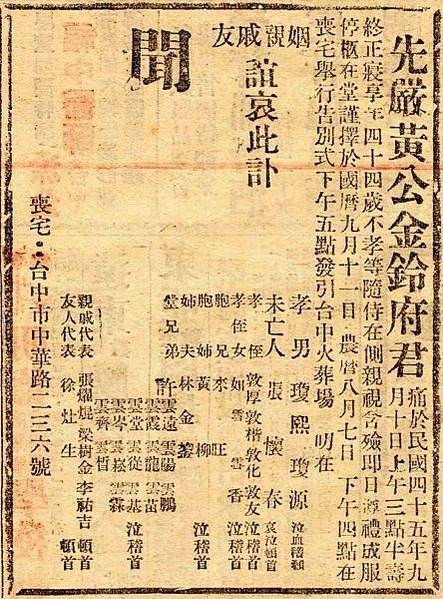 先嚴黃公金鈴府君
痛於民國四十五年九
月十日上午三點半壽
終正寢享年四十四歲不孝等隨侍在側親視含殮即日遵禮成服
停柩在堂謹擇於國曆九月十一日農曆八月七日下午四點在
喪宅舉行告別式下午五點發引台中火葬場 叨在
姻誼戚友
誼哀此訃
聞
孝男 瓊熙 瓊源 泣血稽顙
未亡人 張懷春 哀泣頓首
孝姪 敦厚 敦楷 敦化 敦友 泣稽首
孝姪女 如雲 雪香 泣稽首
胞兄 來旺
胞姉 黃柳 泣稽首
姉夫 林金
堂兄弟 許
雲遠 雲陽 雲鵬
雲霞 雲龍 雲苗
雲堂 雲從 雲基 泣稽首
雲岑 雲崧 雲霖
雲齊 雲哲
親戚代表 張燿焜 梁樹金 李祐吉 頓首
友人代表 徐灶生 頓首
喪宅：台中市中華路二三六號